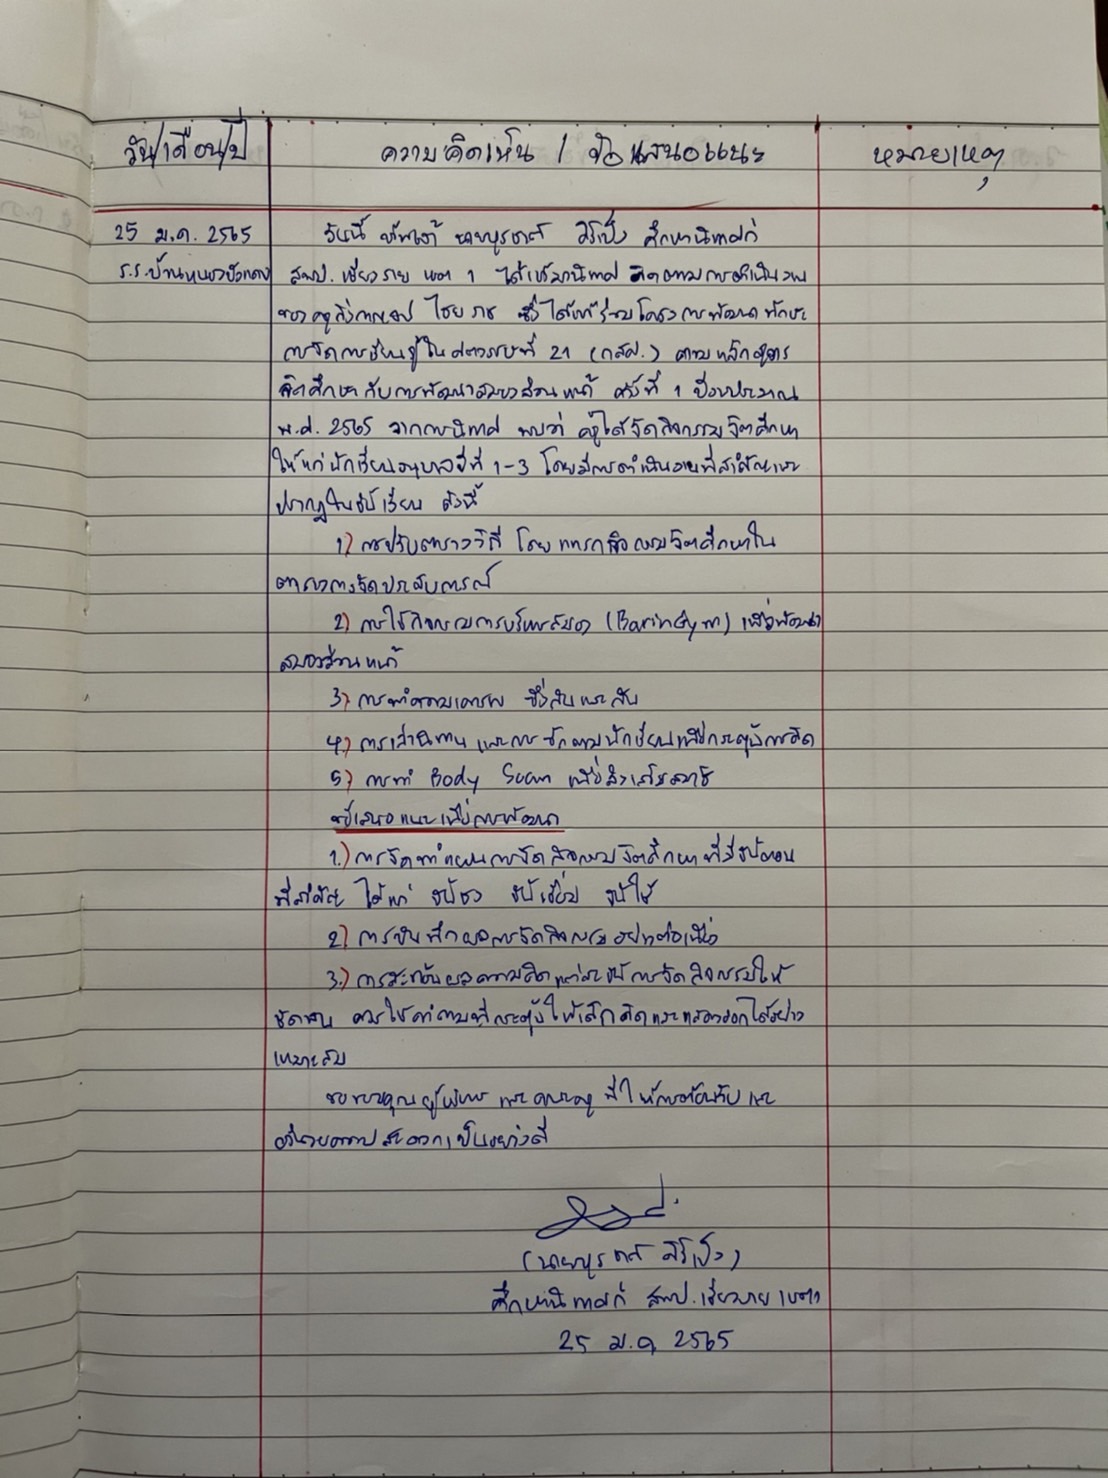 วัน/เดือน/ปี
ความคิดเห็น / ข้อเสนอแนะ
หมายเหตุ
25 ม.ค. 2565
ร.ร.บ้านหนองบัวแดง
วันนี้ ข้าพเจ้า ศึกษานิเทศก์
สพป. เชียงราย เขต 1 ได้เข้ามานิเทศ ติดตามการดำเนินงาน
ของครู ไชยราช ซึ่งได้เข้าร่วมโครงการพัฒนาทักษะ
การจัดการเรียนรู้ในศตวรรษที่ 21 (กสศ.) ตามหลักสูตร
จิตศึกษากับการพัฒนาสมองส่วนหน้า ครั้งที่ 1 ปีงบประมาณ
พ.ศ. 2565 จากการนิเทศ พบว่า ครูได้จัดกิจกรรมจิตศึกษา
ให้แก่นักเรียนอนุบาลปีที่ 1-3 โดยมีการดำเนินงานที่สำคัญและ
ปรากฏในชั้นเรียน ดังนี้
1) การปรับตารางวิถี โดยแทรกกิจกรรมจิตศึกษาใน
ตารางการจัดประสบการณ์
2) การใช้กิจกรรมการบริหารสมอง (BarinGym) เพื่อพัฒนา
สมองส่วนหน้า
3) การทำความเคารพ ซึ่งกันและกัน
4) การเล่านิทาน และการซักถามนักเรียนเพื่อกระตุ้นการคิด
5) การทำ Body Scan เพื่อส่งเสริมสมาธิ
ข้อเสนอแนะเพื่อการพัฒนา
1.) การจัดทำแผนการจัดกิจกรรมจิตศึกษา ที่มีขั้นตอน
ที่สำคัญ ได้แก่ ขั้นชง ขั้นเชื่อม ขั้นใช้
2) การบันทึกผลการจัดกิจกรรมอย่างต่อเนื่อง
3.) การสะท้อนผลความคิดแต่ละขั้นการจัดกิจกรรมให้
ชัดเจน ควรใช้คำถามที่กระตุ้นให้เด็กคิดและแสดงออกได้อย่าง
เหมาะสม
ขอขอบคุณผู้บริหาร และคณะครู ที่ให้การต้อนรับและ
อำนวยความสะดวกเป็นอย่างดี
ศึกษานิเทศก์ สพป.เชียงราย เขต 1
25 ม.ค. 2565